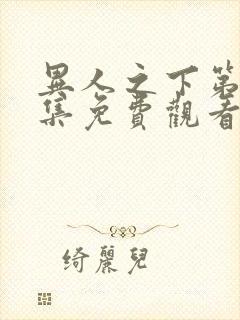 異人之下第
集免費觀看
綺麗兒